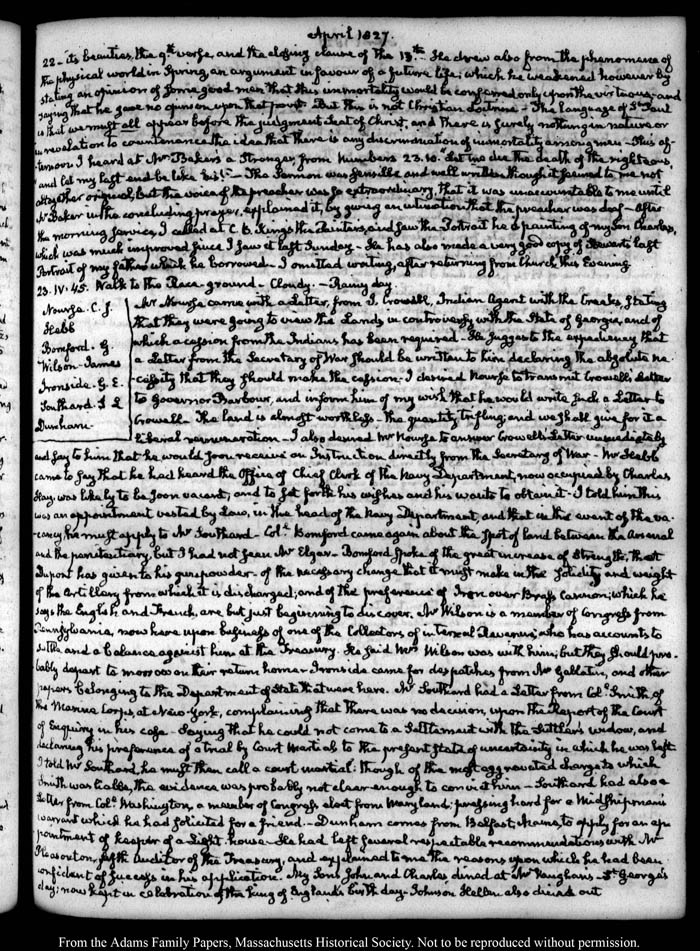 April 1827.
22 - its beauties, the 9th verse, and the closing clause of the 13th. He drew also from the phenomena of
the physical world in Spring, an argument in favour of a future life; which he weakened however by
stating an opinion of some good men that this immortality would be conferred only upon the virtuous; and
saying that he gave no opinion upon that point. But this is not Christian doctrine - The language of St Paul
is that we must all appear before the judgment Seat of Christ, and there is surely nothing in nature or
in revelation to countenance the idea that there is any discrimination of immortality among men - This af-
ternoon I heard at Mr Baker's a Stranger, from Numbers 23.10. Let me die the death of the righteous,
and let my last end be like his! - The Sermon was sensible and well written though it seemed to me not
altogether original, but the voice of the preacher was so extraordinary, that it was unaccountable to me until
Mr Baker in the concluding prayer, explained it, by giving an intimation that the preacher was deaf - After
the morning service, I called at C. B. King's the Painter's, and saw the Portrait he is painting of my Son Charles,
which was much improved since I saw it last Sunday - He has also made a very good copy of Stewart's last
Portrait of my father which he borrowed - I omitted writing, after returning from Church, this Evening
23. IV. 45. Walk to the Race-ground - Cloudy. - Rainy day
Nourse. C. J.
Hebb
Bomford. G
Wilson - James
Ironside. G. E.
Southard. S L
Dunham
Mr Nourse came with a Letter, from J. Crowell, Indian Agent with the Creeks, stating
that they were going to view the Lands in controversy with the State of Georgia, and of
which a cession from the Indians has been required. He suggests the expediency that
a Letter from the Secretary of War should be written to him declaring the absolute ne-
cessity that they should make the cession. I desired Nourse to transmit Crowell's Letter
to Governor Barbour, and inform him of my wish that he would write such a Letter to
Crowell - The land is almost worthless. The quantity trifling; and we shall give for it a
liberal remuneration - I also desired Mr Nourse to answer Crowell's Letter immediately
and say to him that he would soon receive an Instruction directly from the Secretary of War - Mr Hebb
came to say that he had heard the Office of Chief Clerk of the Navy Department, now occupied by Charles
Hay, was likely to be soon vacant; and to set forth his wishes and his wants to obtain it - I told him this
was an appointment vested by Law, in the head of the Navy Department, and that in the event of the va-
cancy, he must apply to Mr Southard - Coll Bomford came again about the spot of land between the Arsenal
and the penitentiary, but I had not seen Mr Elgar - Bomford spoke of the great increase of Strength, that
Dupont has given to his gunpowder - of the necessary change that it must make in the solidity and weight
of the Artillery from which it is discharged; and of the preference of Iron over Brass Cannon; which he
says the English and French, are but just beginning to discover. Mr Wilson is a member of Congress from
Pennsylvania, now here upon business of one of the Collectors of internal Revenue; who has accounts to
settle and a balance against him at the Treasury. He said Mrs Wilson was with him; but they should pro-
bably depart to morrow on their return home - Ironside came for despatches from Mr Gallatin, and other
papers belonging to the Department of State that were here. Mr Southard had a Letter from Col. Smith of
the Marine Corps, at New-York, complaining that there was no decision upon the Report of the Court
of Enquiry in his case - Saying that he could not come to a Settlement with the Settler's widow, and
declaring his preference of a trial by Court Martial to the present state of uncertainty in which he was left
I told Mr Southard, he must then call a court martial: though of the most aggravated charge to which
Smith was liable, the evidence was probably not clear enough to convict him - Southard had also a
Letter from Col. Washington, a member of Congress elect from Maryland; pressing hard for a Midshipman's
warrant which he had solicited for a friend. - Dunham comes from Belfast, Maine, to apply for an ap-
pointment of keeper of a Light-house - He had left several respectable recommendations with Mr
Pleasonton, fifth Auditor of the Treasury, and explained to me the reasons upon which he had been
confident of success in his application. My Sons John and Charles dined at Mr Vaughan's - St George's
day; now kept in celebration of the king of England's birth day - Johnson Hellen also dined out
From the Adams Family Papers, Massachusetts Historical Society. Not to be reproduced without permission.